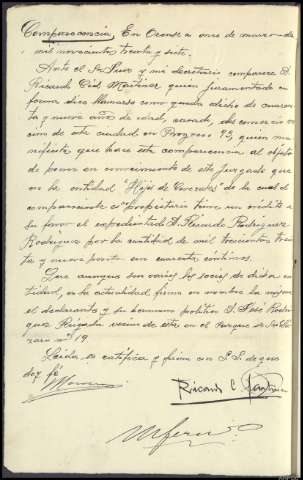 Comparecencia. En Orense a once de marzo de
mil novecientos treinta y siete.
Ante el Sr. Juez y mi secretario comparece D.
Ricardo Cid Martínez quien juramentado en
forma dice llamarse como queda dicho de cuaren-
ta y nueve años de edad, casado, del comercio ve-
cino de esta ciudad en Progreso 93, quien ma-
nifiesta que hace esta comparecencia al objeto
de poner en conocimiento de este Juzgado que
en la entidad "Hijos de González" de la cual el
compareciente es propietario tiene un crédito a
su favor el expedientado D. Ricardo Rodríguez
Rodríguez por la cantidad de mil trescientas trein-
ta y nueve pesetas con cuarenta céntimos.
Que aunque son varios los socios de dicha en-
tidad, en la actualidad firma en nombre de la misma
el declarante y su hermano político D. José Rodri-
guez vecino de esta en el Parque de San Lá-
zaro nº 19
Leida, se ratifica y firma con S.S. de que
doy fé
Ricardo C. Martínez